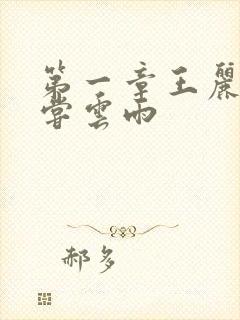 第一章王麗
嘗雲雨
郝多